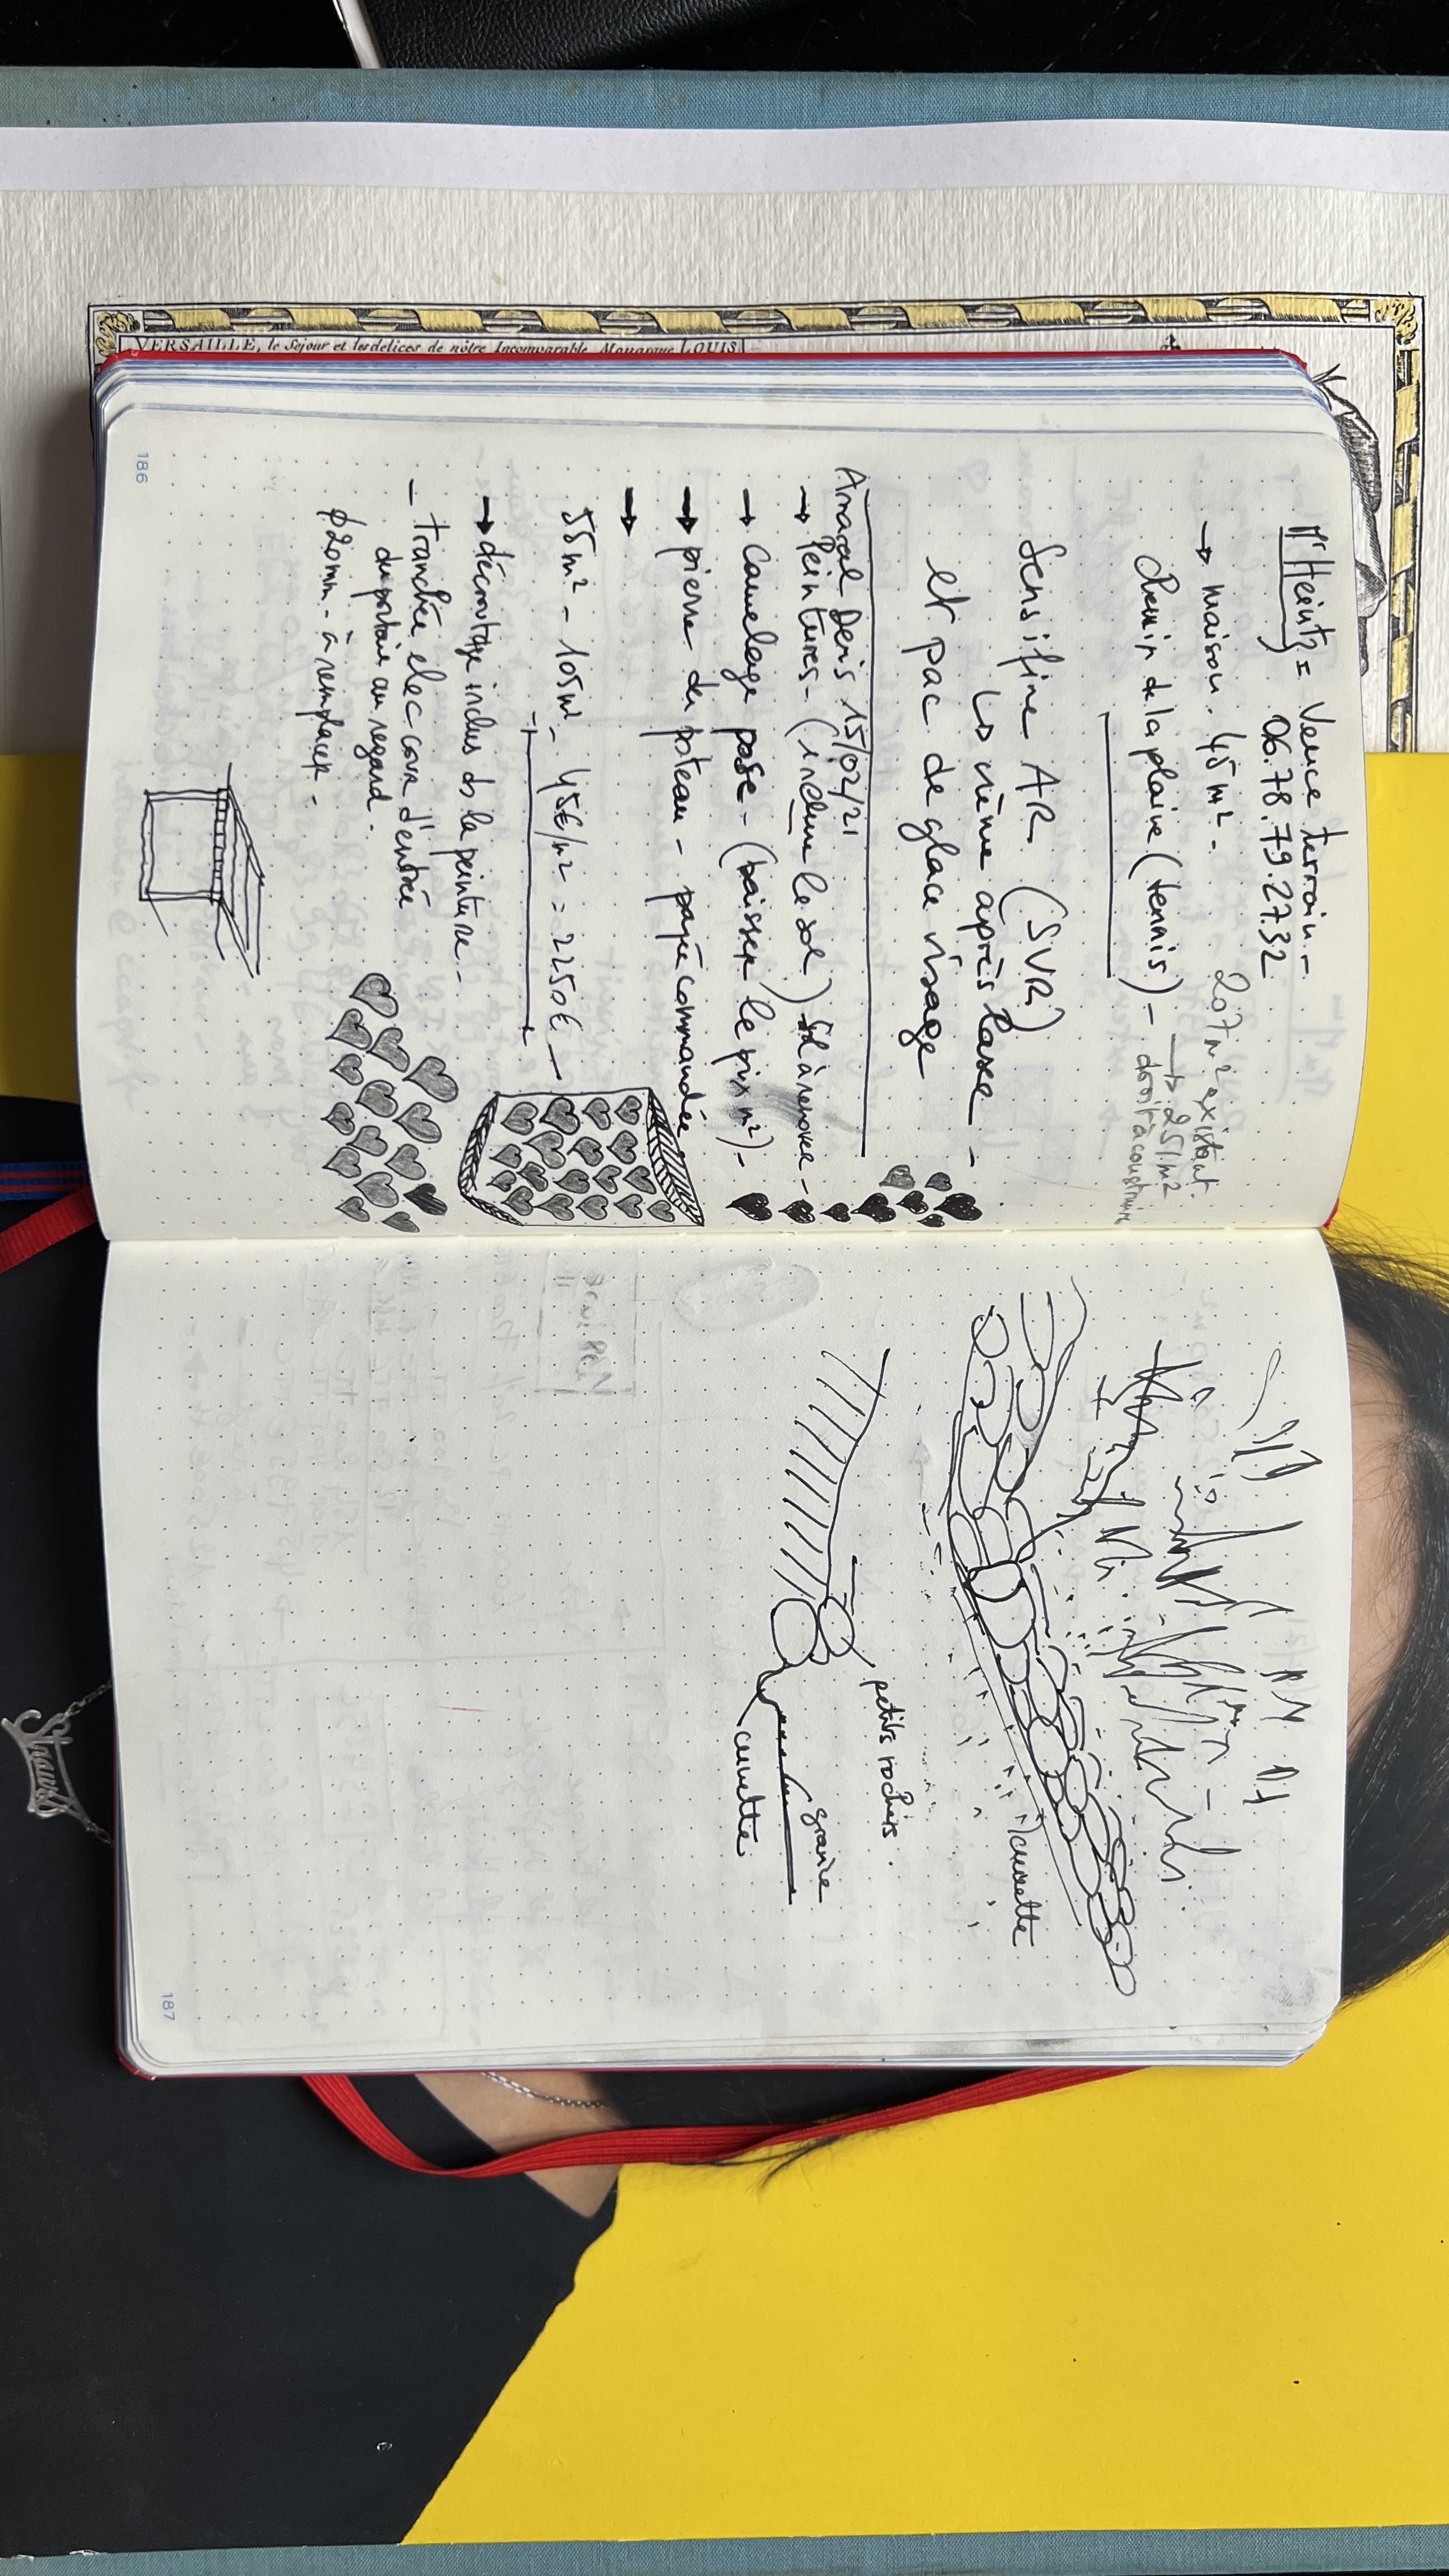 VERSAILLE, le Sejour et les delices de nôtre Incomparable Monarque LOUIS
Mr Heintz = Vence terrain -
06.78.79.27.32
→ maison. 45 m² - 207 m² existant.
→ 251 m²
droit à construire
Chemin de la plaine (tennis) -
Sensifine AR (SVR)
↳ crème après laser -
et pac de glace visage
Denis 15/02/21
→ Peintures - (inclure le sol) sol à rénover -
→ Carrelage pose - (baisser le prix m²) -
→ pierre du poteau - payée commandée
→
55 m² - 105 m² - 45€/m² = 2250€ -
→ décroutage inclus ds la peinture -
- tranchée elec cave d'entrée
du portail au regard -
ϕ 20 mm - à remplacer -
186
cunette
petits rochers.
gravier
cunette
187